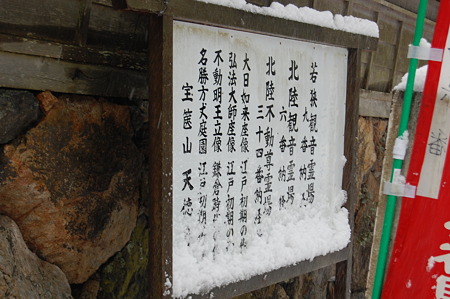 若狭観音霊場
九番納
北陸観音霊場
六番納
北陸不動尊霊場
三十四番納経
大日如来座像 江戸初期の
弘法大師座像 江戸初期の
不動明王立像 鎌倉時
名勝方丈庭園 江戸初期
宝篋山 天徳
番